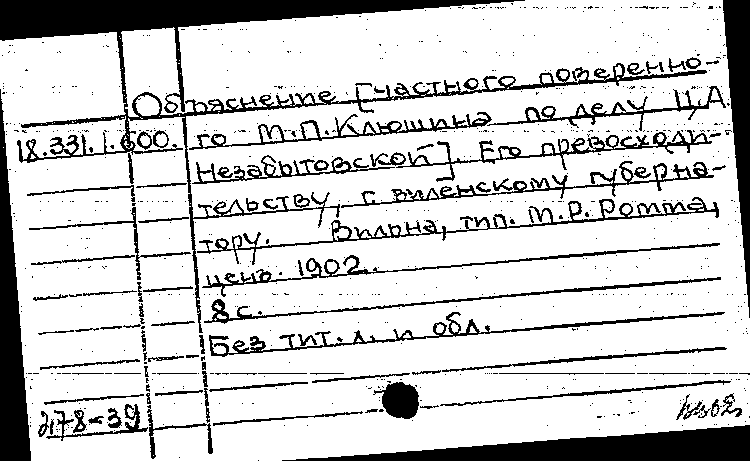 Объяснение [частного поверенно-
18.331.1.600. го М.П.Клюшина по делу Ц.А.
Незабытовской]. Его превосходи-
тельству, г. виленскому губерна-
тору. Вильна, тип. М.Р.Ромма,
ценз. 1902.
8 с.
Без тит.л. и обл.
2178-39